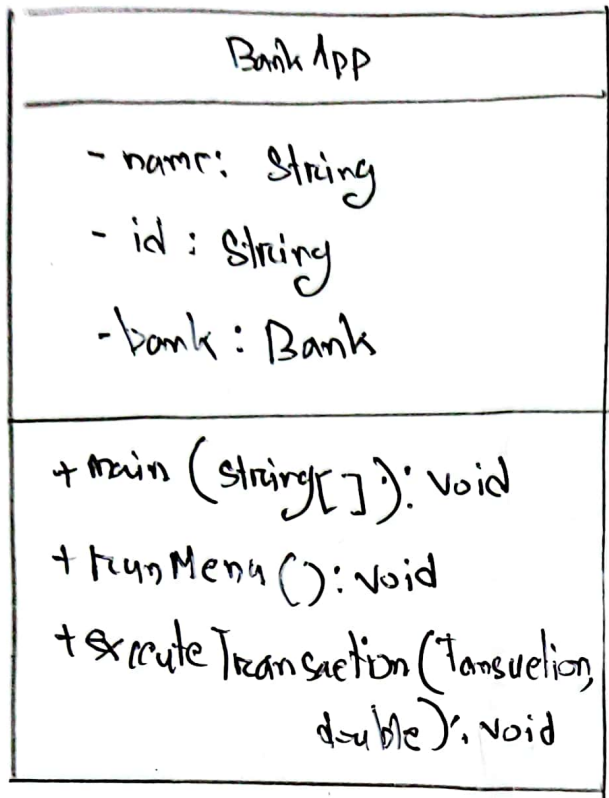 Bank App
- name: String
- id : String
- bank : Bank
+ main (string[]): void
+ runMenu () : void
+ executeTransaction (Tansuction,
double) : void